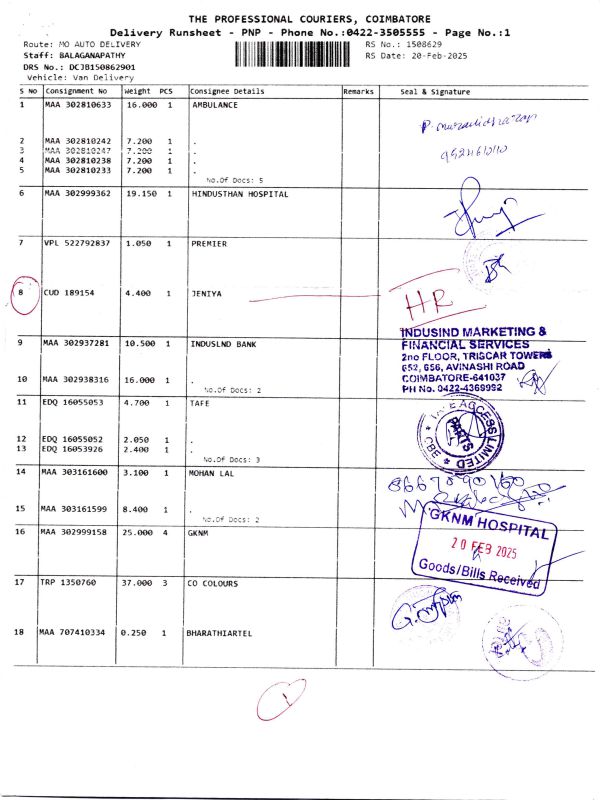 THE PROFESSIONAL COURIERS, COIMBATORE
Delivery Runsheet - PNP - Phone No.:0422-3505555 - Page No.:1
Route: MO AUTO DELIVERY RS No.: 1508629
Staff: BALAGANAPATHY RS Date: 20-Feb-2025
DRS No.: DCJB150862901
Vehicle: Van Delivery
S No Consignment No Weight PCS Consignee Details Remarks Seal & Signature
1 MAA 302810633 16.000 1 AMBULANCE
2 MAA 302810242 7.200 1 .
3 MAA 302810247 7.200 1 .
4 MAA 302810238 7.200 1 .
5 MAA 302810233 7.200 1 .
No.Of Docs: 5
6 MAA 302999362 19.150 1 HINDUSTHAN HOSPITAL
7 VPL 522792837 1.050 1 PREMIER
8 CUD 189154 4.400 1 JENIYA HR
9 MAA 302937281 10.500 1 INDUSLND BANK
INDUSIND MARKETING &
FINANCIAL SERVICES
2no FLOOR, TRISCAR TOWERS
652, 656, AVINASHI ROAD
COIMBATORE-641037
PH No. 0422-4369992
10 MAA 302938316 16.000 1 .
No.Of Docs: 2
11 EDQ 16055053 4.700 1 TAFE
12 EDQ 16055052 2.050 1 .
13 EDQ 16053926 2.400 1 .
No.Of Docs: 3
ACCESS LIMITED
PARTS
CBE
14 MAA 303161600 3.100 1 MOHAN LAL
15 MAA 303161599 8.400 1 .
No.Of Docs: 2
16 MAA 302999158 25.000 4 GKNM
GKNM HOSPITAL
20 FEB 2025
Goods/Bills Received
17 TRP 1350760 37.000 3 CO COLOURS
18 MAA 707410334 0.250 1 BHARATHIARTEL
1